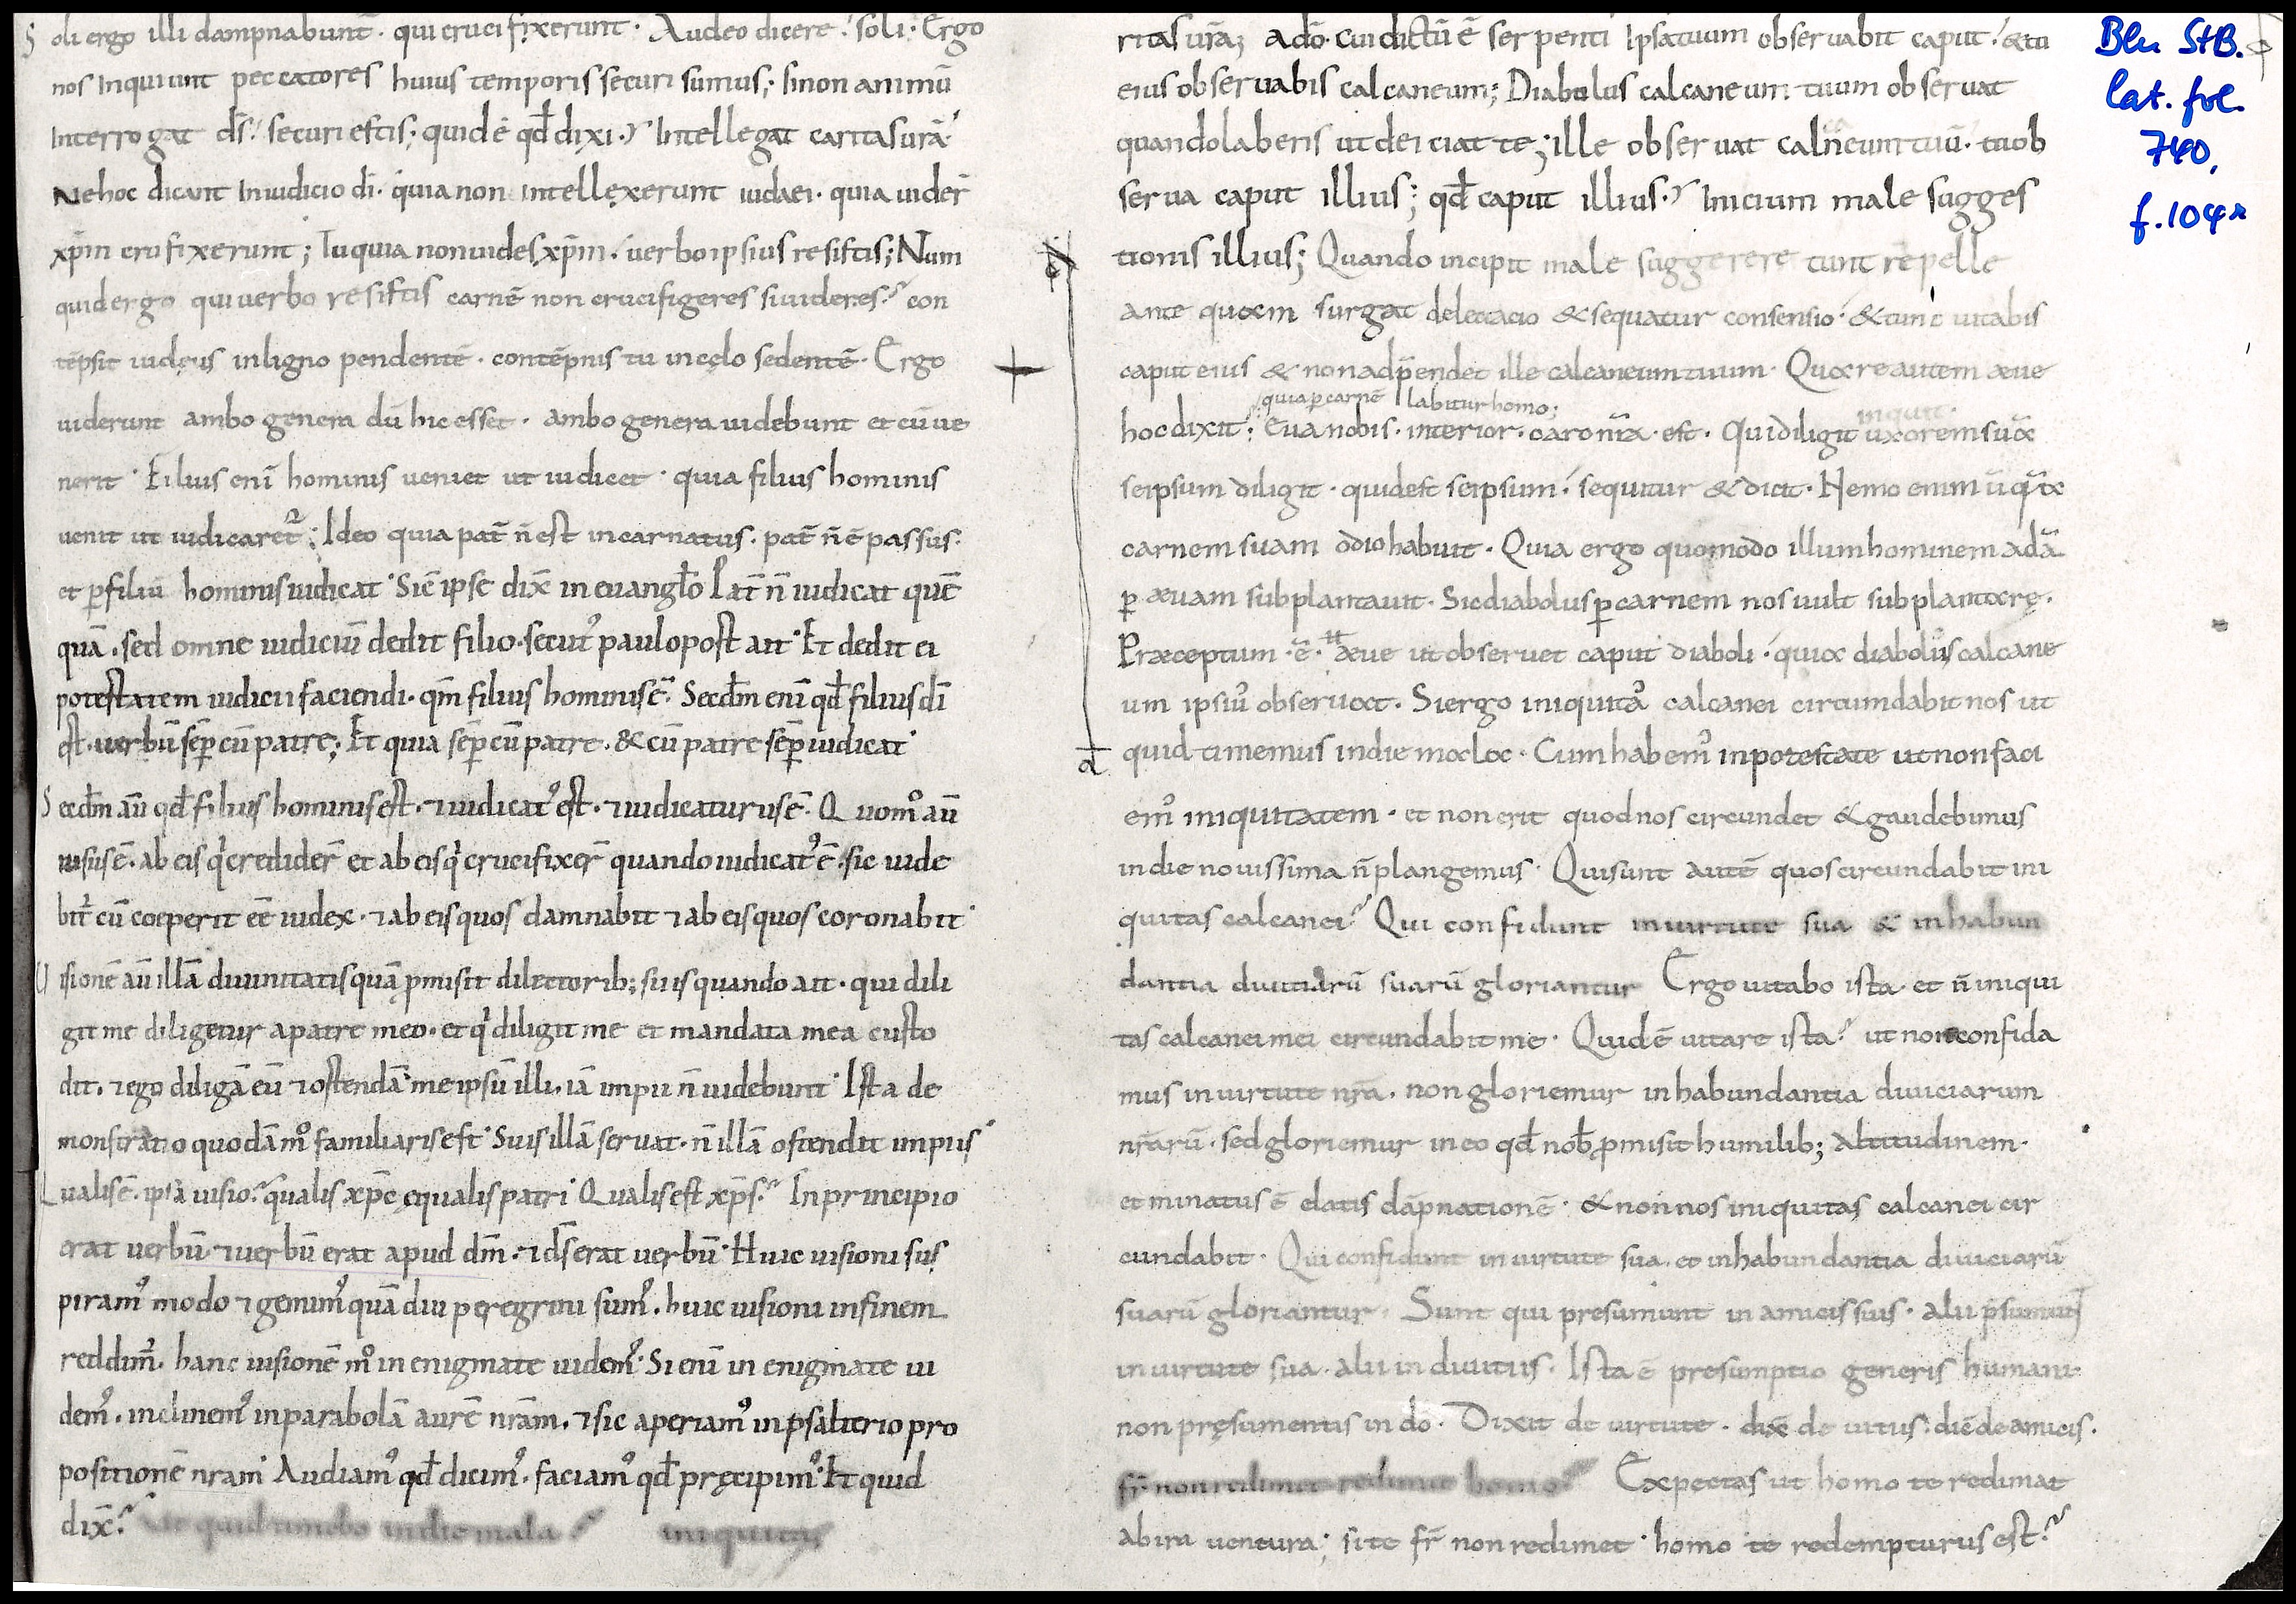 Soli ergo illi dampnabunt̄. qui crucifixerunt. Audeo dicere. soli. Ergo
nos Inquiunt peccatores huius temporis securi sumus; si non animū
Interrogat ds̄. securi estis; quid ē qđ dixi.? Intellegat caritas ur̄a.
Ne hoc dicant In iudicio dī. quia non intellexerunt iudaei. quia uider̄
xp̄m crufixerunt; Tu quia non uides xp̄m. uerbo ipsius resistis; Num
quid ergo qui uerbo resistis carnē non crucifigeres si uideres? con
tēpsit iudęus in ligno pendentē. contēpnis tu in cęlo sedentē. Ergo
uiderunt ambo genera dū hic esset. ambo genera uidebunt et cū ue
nerit. Filius enī hominis ueniet ut iudicet. quia filius hominis
uenit ut iudicaret᷑; Ideo quia pat̄ n̄ est incarnatus. pat̄ n̄ ē passus.
et ꝑ filiū hominis iudicat. Sic̄ ipse dix̄ in euangło Pat̄ n̄ iudicat quē
quā. sed omne iudiciū dedit filio. secut᷒ paulo post ait. Et dedit ei
potestatem iudicii faciendi. qm̄ filius hominis ē. Sec̄dm enī qđ filius dī
est. uerbū semꝑ cū patre; Et quia semꝑ cū patre. & cū patre semꝑ iudicat.
Sec̄dm aū qđ filius hominis est. ⁊ iudicat᷒ est. ⁊ iudicaturus ē. Quom̊ aū
uisus ē. ab eis qi credider̄ et ab eis qi crucifixer̄ quando iudicat᷒ ē. sic uide
bit᷑ cū coeperit eē iudex. ⁊ ab eis quos damnabit ⁊ ab eis quos coronabit.
Uisionē aū illā diuinitatis quā ꝓmisit dilectorib; suis quando ait. qui dili
git me diligetur a patre meo. et qi diligit me et mandata mea custo
dit. ⁊ ego diligā eū ⁊ ostendā me ipsū illi. iā impii n̄ uidebunt. Ista de
monstratio quodā m̊ familiaris est. Suis illā seruat. n̄ illā ostendit impiis.
Qualis ē. ipsa uisio? qualis xp̄c ęqualis patri. Qualis est xp̄s? In principio
erat uerbū. ⁊ uerbū erat apud dm̄. ⁊ ds̄ erat uerbū. Huic uisioni sus
piram᷒ modo ⁊ gemim᷒ quā diu peregrini sum᷒. huic uisioni in finem
reddim᷒. hanc uisionē m̊ in enigmate uidem᷒. Si enī in enigmate ui
dem᷒. inclinem᷒ in parabolā aurē nr̄am. ⁊ sic aperiam᷒ in psalterio pro
positionē nram. Audiam᷒ qđ dicim᷒. faciam᷒ qđ pręcipim᷒. Et quid
dix̄? Ut quid timebo in die mala? iniquitas
ritas ur̄a; adō. cui dictū ē serpenti Ipsa tuum obseruabit caput. & tu
eius obseruabis calcaneum; Diabolus calcaneum tuum obseruat
quando laberis ut deiciat te; ille obseruat calcneum tuū. tu ob
serua caput illius; qđ caput illius.? Inicium male sugges
tionis illius; Quando incipit male suggerere tunc repelle
ante quam surgat delectacio & sequatur consensio. & tunc uitabis
caput eius & non adp̄endet ille calcaneum tuum. Quare autem æuę
quia ꝑ carnē labitur homo;
inquit.
hoc dixit: Eua nobis. interior. caro nr̄a. est. Qui diligit uxorem suā
seipsum diligit. quid est seipsum. sequitur & dicit. Nemo enim ūquā
carnem suam odio habuit. Quia ergo quomodo illum hominem adā
ꝑ æuam subplantauit. Sic diabolus ꝑ carnem nos uult subplantarę.
Præceptum. ē. æue ut obseruet caput diaboli. quia diabolus calcane
um ipsius obseruat. Si ergo iniquitas calcanei circumdabit nos ut
quid timemus in die mala. Cum habem᷒ in potestate ut non faci
em᷒ iniquitatem. et non erit quod nos circundet & gaudebimus
in die nouissima n̄ plangemus. Qui sunt autē quos circundabit ini
quitas calcanei? Qui confidunt in uirtute sua & in habun
dantia diuitiarū suarū gloriantur Ergo uitabo ista. et n̄ iniqui
tas calcanei mei circundabit me. Quid ē uitare ista? ut non confida
mus in uirtute nr̄a. non gloriemur in habundantia diuiciarum
nr̄arū. sed gloriemur in eo qđ nob̄ ꝓmisit humilib; altitudinem.
et minatus ē elatis dāpnationē. & non nos iniquitas calcanei cir
cundabit. Qui confidunt in uirtute sua. et in habundantia diuiciarū
suarū gloriantur. Sunt qui presumunt in amicis suis. alii p̄sumunt
in uirtute sua. alii in diuitiis. Ista ē presumptio generis humani
non pręsumentis in dō. Dixit de uirtute. dix̄ de uitiis. dic̄ de amicis.
fr̄ non redimet redimet homo? Expectas ut homo te redimat
ab ira uentura; si te fr̄ non redimet. homo te redempturus est?
Bln StB.
lat. fol.
740,
f. 104r